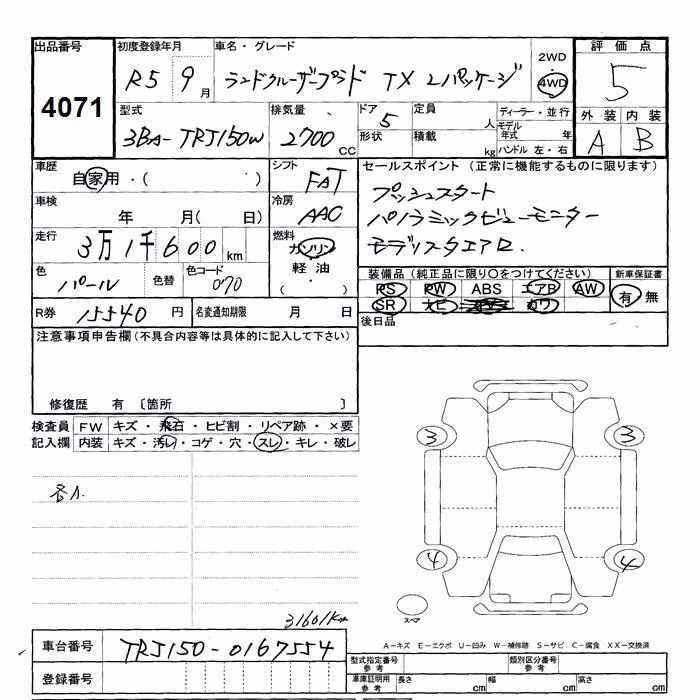 出品番号 初度登録年月 車名・グレード 2WD 評価点
4071 R5 9月 ランドクルーザープラド TX Lパッケージ 4WD 5
型式 排気量 ドア 定員 ディーラー・並行 外装 内装
3BA-TRJ150W 2700 CC 5 人 モデル年式 年 A B
形状 積載 kg ハンドル 左・右
車歴 自家用・( ) シフト FAT セールスポイント (正常に機能するものに限ります)
車検 年 月( 日) 冷房 AAC プッシュスタート
パノラミックビューモニター
走行 3万1千600km 燃料 ガソリン モデリスタエアロ
軽油
( ・ )
色 パール 色替 色コード 070 装備品 (純正品に限り○をつけてください) 新車保証書
PS PW ABS エアB AW 有 無
SR ナビ カワ
R券 15540円 名変通知期限 月 日 後日品
注意事項申告欄(不具合内容等は具体的に記入して下さい)
修復歴 有 〔箇所 〕
検査員 FW キズ・飛石・ヒビ割・リペア跡・×要
記入欄 内装 キズ・汚レ・コゲ・穴・スレ・キレ・破レ
各A.
3 3
4 4
スペア
31601Km
車台番号 TRJ150-0167554
A-キズ E-エクボ U-凹み W-補修跡 S-サビ C-腐食 XX-交換済
登録番号
型式指定番号 参考 類別区分番号 参考
車庫証明用 参考 長さ cm 幅 cm 高さ cm